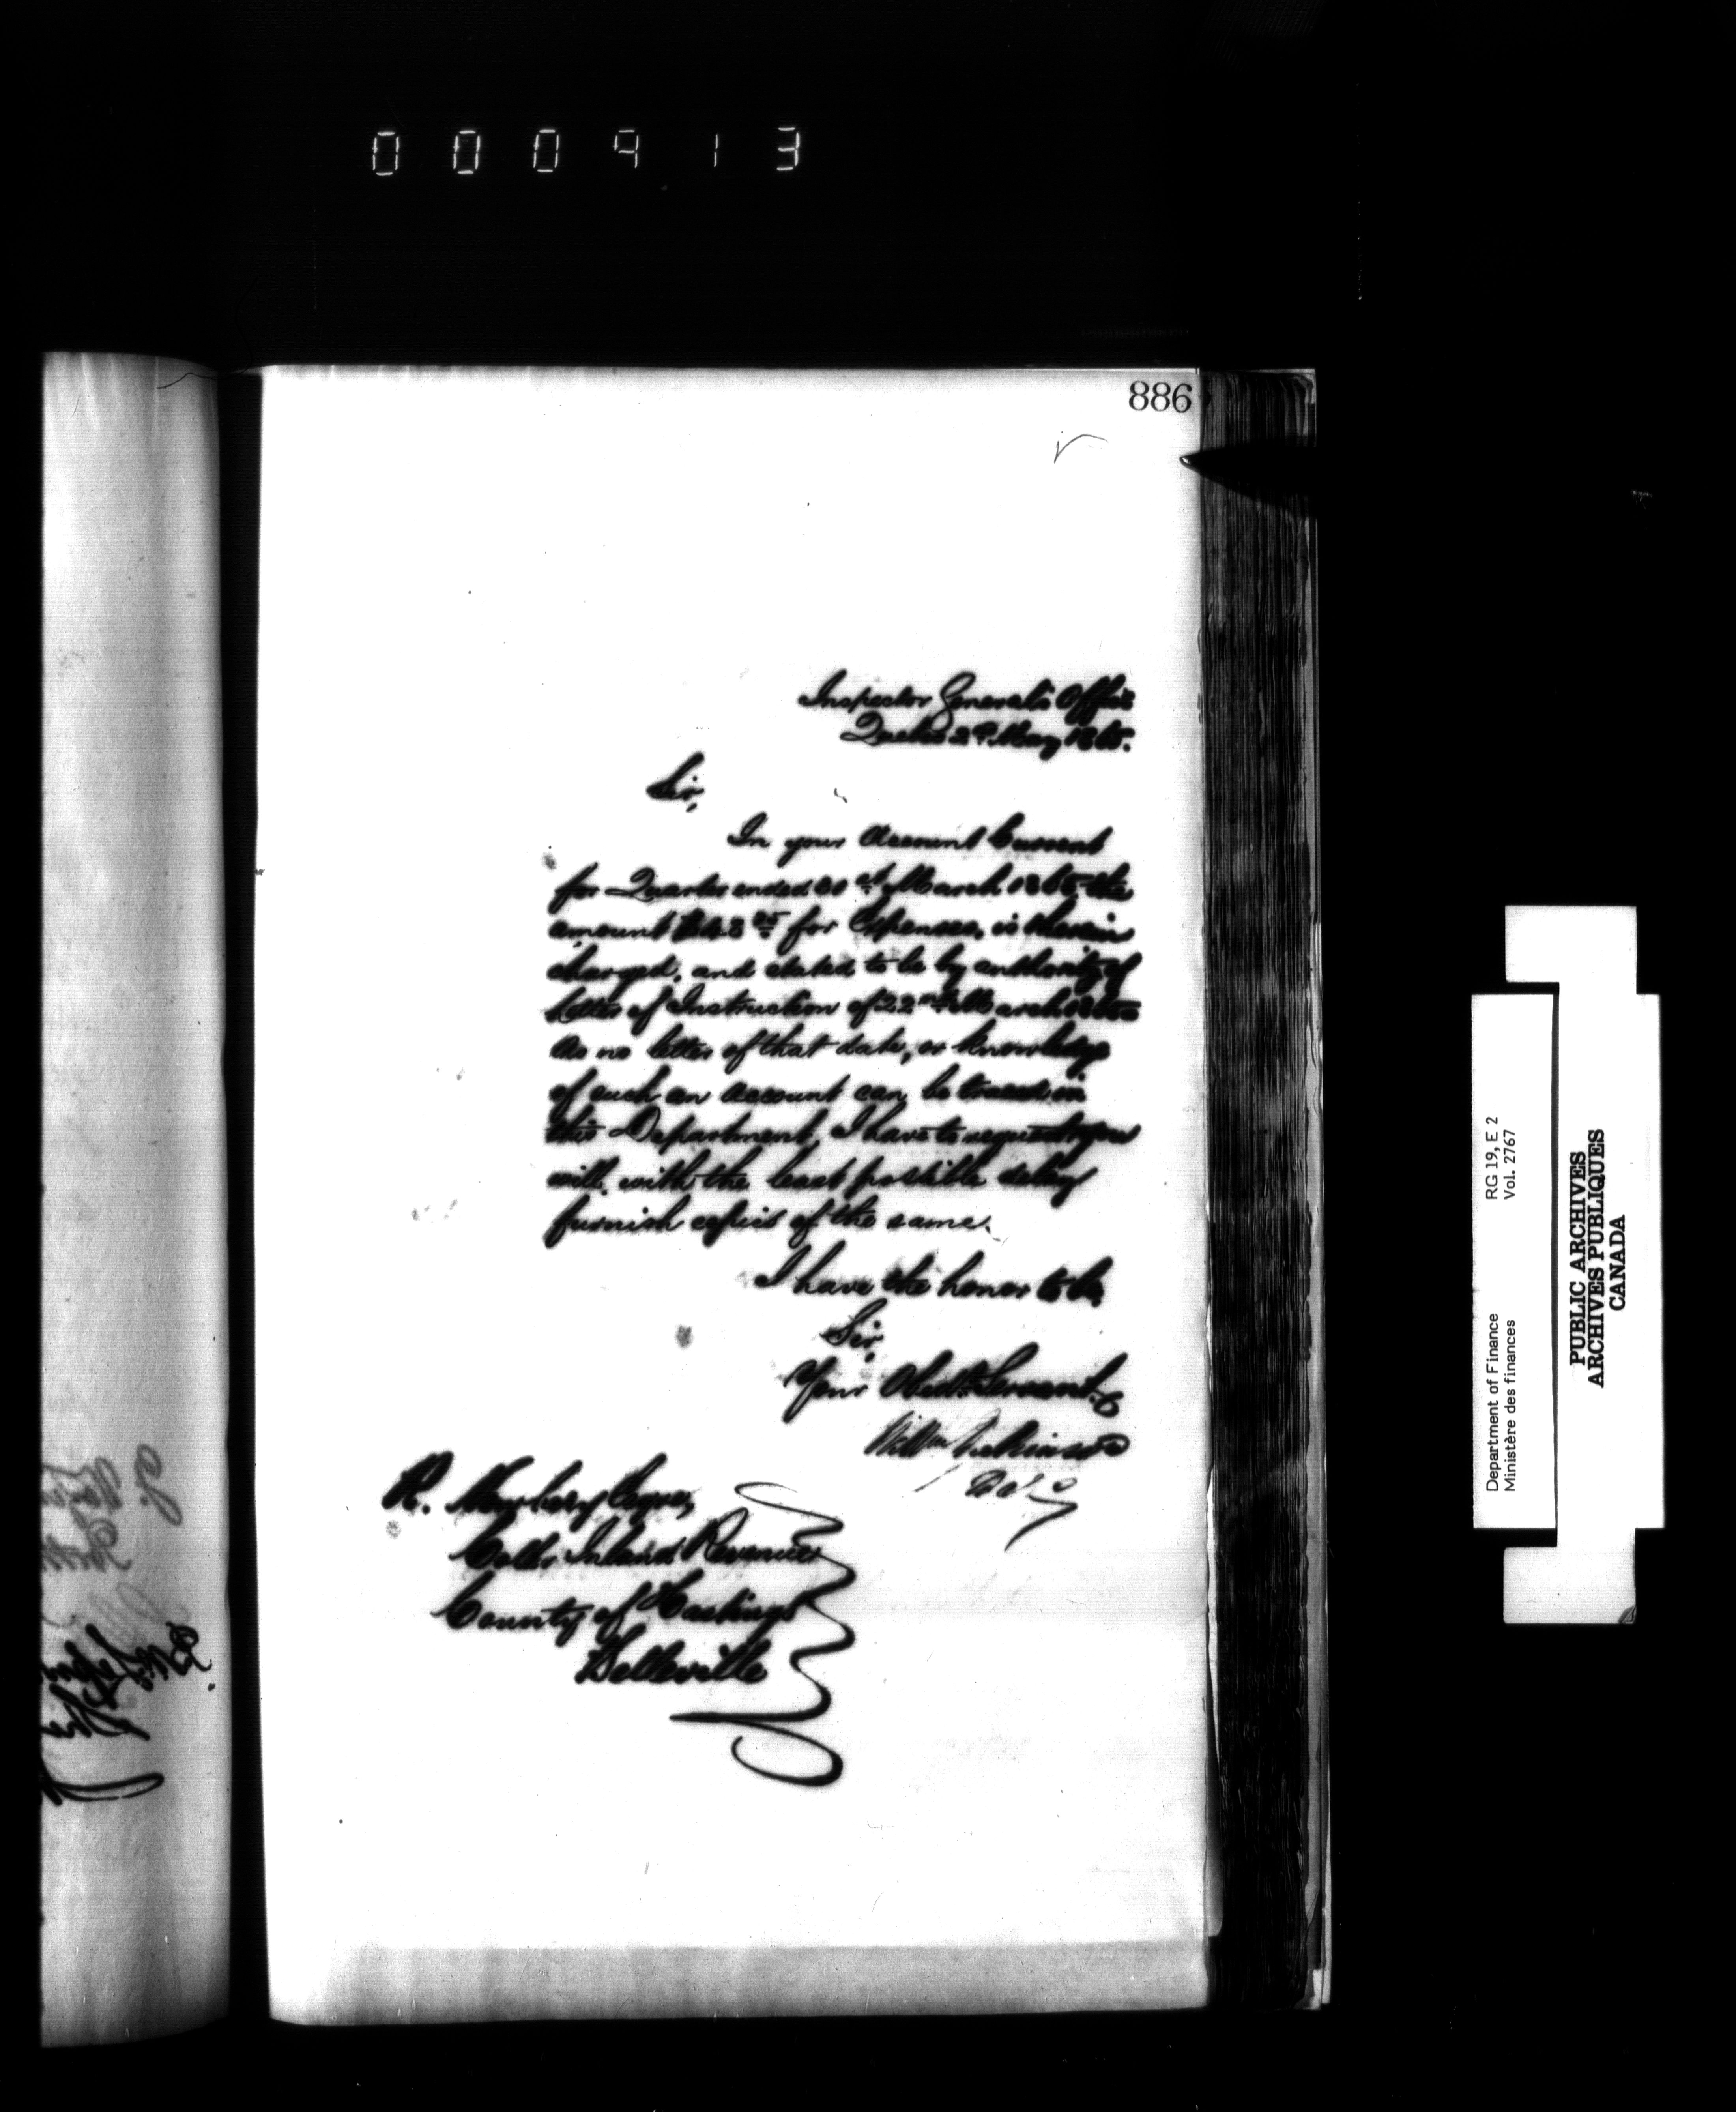 000913
886
Inspector General's Office
Quebec 2d May 1865.
Sir,
In your Account Current
for Quarter ended 31st March 1865 the
amount for Expenses, is therein
charged, and stated to be by authority of
letter of Instruction of 22nd March 1865
As no letter of that date, or knowledge
of such an account can be traced in
this Department, I have to request you
will, with the least possible delay
furnish copies of the same.
I have the honor to be,
Sir,
Your Obedt. Servant.
Willm Dickinson
R. Newbery Esqre,
Collr. Inland Revenue
County of Hastings
Belleville
Department of Finance RG 19, E 2
Ministère des finances Vol. 2767
PUBLIC ARCHIVES
ARCHIVES PUBLIQUES
CANADA